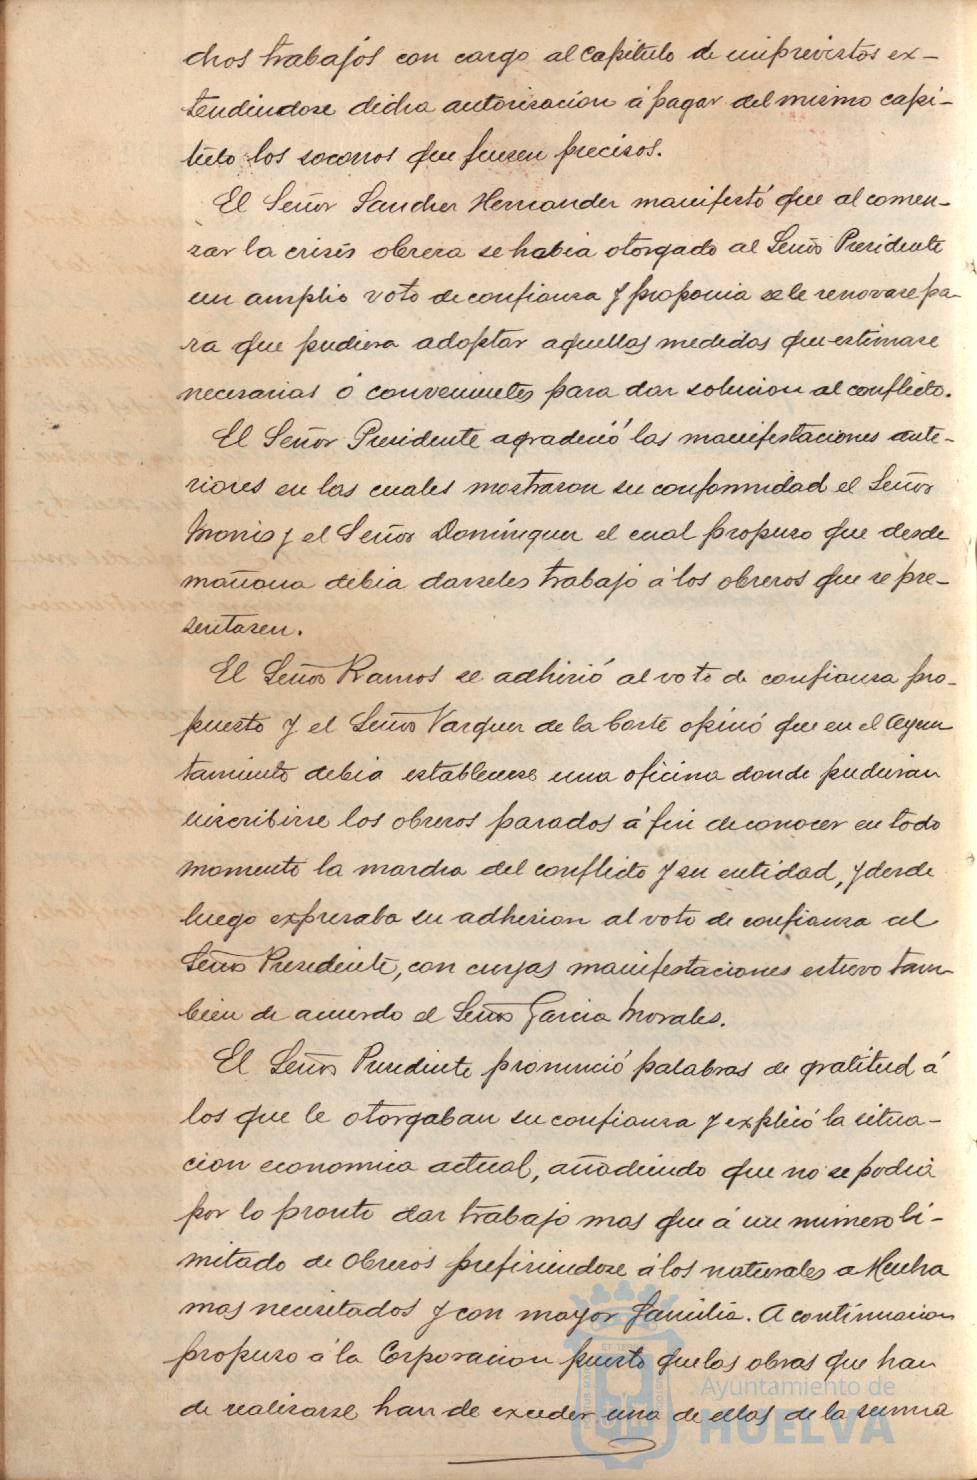 chos trabajos con cargo al Capitulo de imprevistos ex-
tendiendose dicha autorisacion á pagar del mismo capi-
tulo los socorros que fuesen precisos.
El Señor Sanchez Hernandez manifestó que al comen-
zar la crisis obrera se habia otorgado al Señor Presidente
un amplio voto de confianza y proponia se le renovase pa-
ra que pudiera adoptar aquellas medidas que estimase
necesarias ó convenientes para dar solucion al conflicto.
El Señor Presidente agradeció las manifestaciones ante-
riores en las cuales mostraron su conformidad el Señor
Monis y el Señor Domínguez el cual propuso que desde
mañana debia darseles trabajo á los obreros que se pre-
sentasen.
El Señor Ramos se adhirió al voto de confianza pro-
puesto y el Señor Vazquez de la Corte opinó que en el Ayun
tamiento debia establecerse una oficina donde pudieran
inscribirse los obreros parados á fin de conocer en todo
momento la marcha del conflicto y su entidad, y desde
luego expresaba su adhesion al voto de confianza al
Señor Presidente, con cuyas manifestaciones estuvo tam-
bien de acuerdo el Señor Garcia Morales.
El Señor Presidente pronunció palabras de gratitud á
los que le otorgaban su confianza y explicó la situa-
cion economica actual, añadiendo que no se podia
por lo pronto dar trabajo mas que á un numero li-
mitado de obreros prefiriendose á los naturales a Huelva
mas necesitados y con mayor familia. A continuacion
propuso á la Corporacion puesto que las obras que han
de realizarse han de exceder una de ellas de la suma
Ayuntamiento de
HUELVA